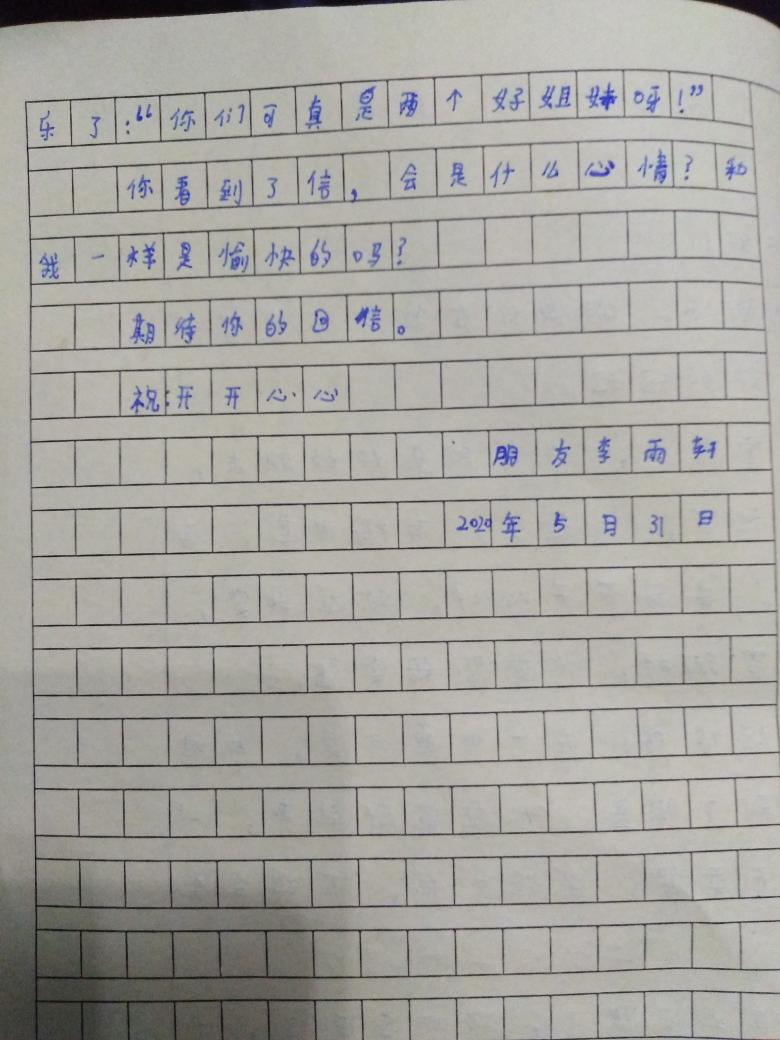 乐了:“你们可真是两个好姐妹呀!”
你看到了信,会是什么心情?和
我一样是愉快的吗?
期待你的回信。
祝:开开心心
朋友李雨轩
2020年5月31日